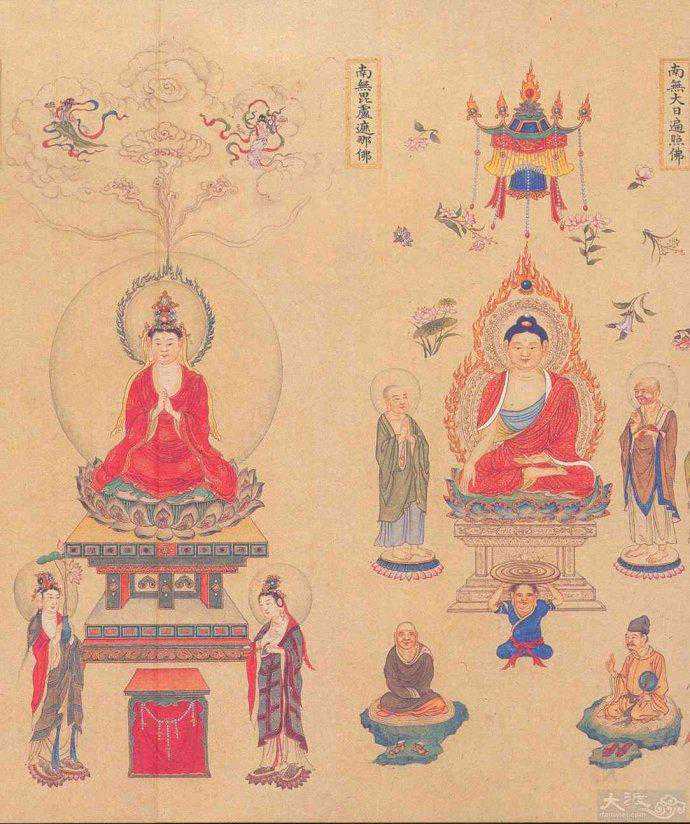 南無大日遍照佛
南無毘盧遮那佛
大渡